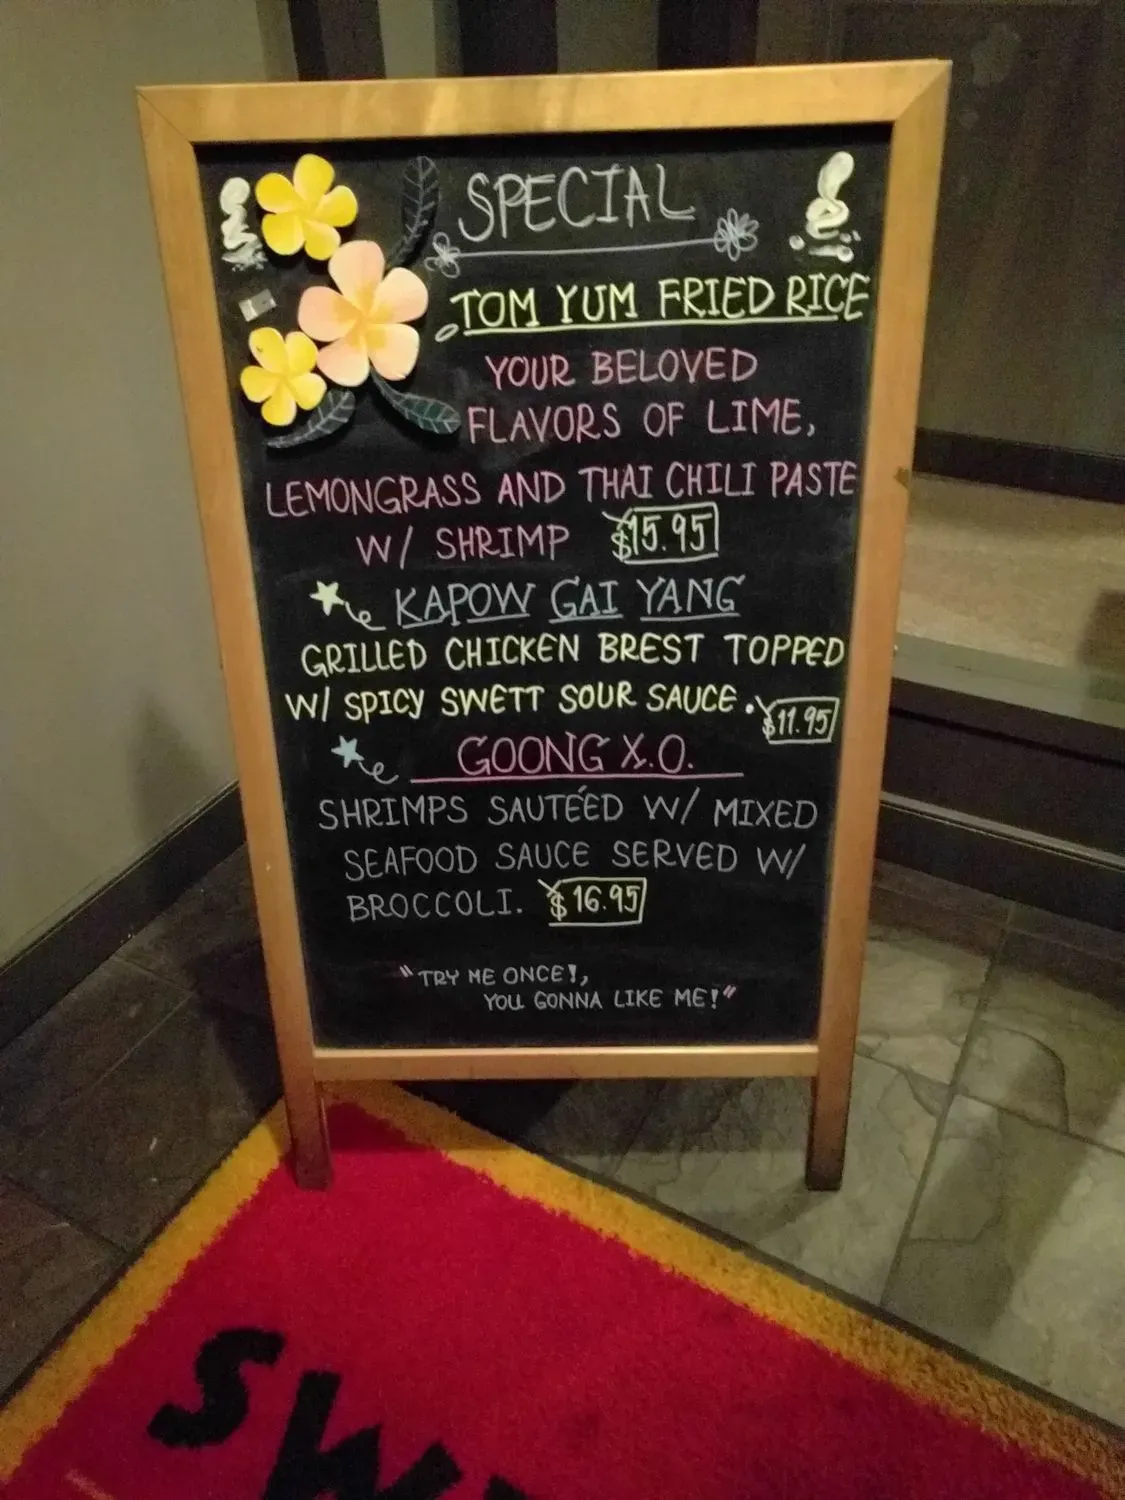 SPECIAL
TOM YUM FRIED RICE
YOUR BELOVED
FLAVORS OF LIME,
LEMONGRASS AND THAI CHILI PASTE
W/ SHRIMP $15.95
KAPOW GAI YANG
GRILLED CHICKEN BREST TOPPED
W/ SPICY SWETT SOUR SAUCE. $11.95
GOONG X.O.
SHRIMPS SAUTÉED W/ MIXED
SEAFOOD SAUCE SERVED W/
BROCCOLI. $16.95
"TRY ME ONCE!,
YOU GONNA LIKE ME!"